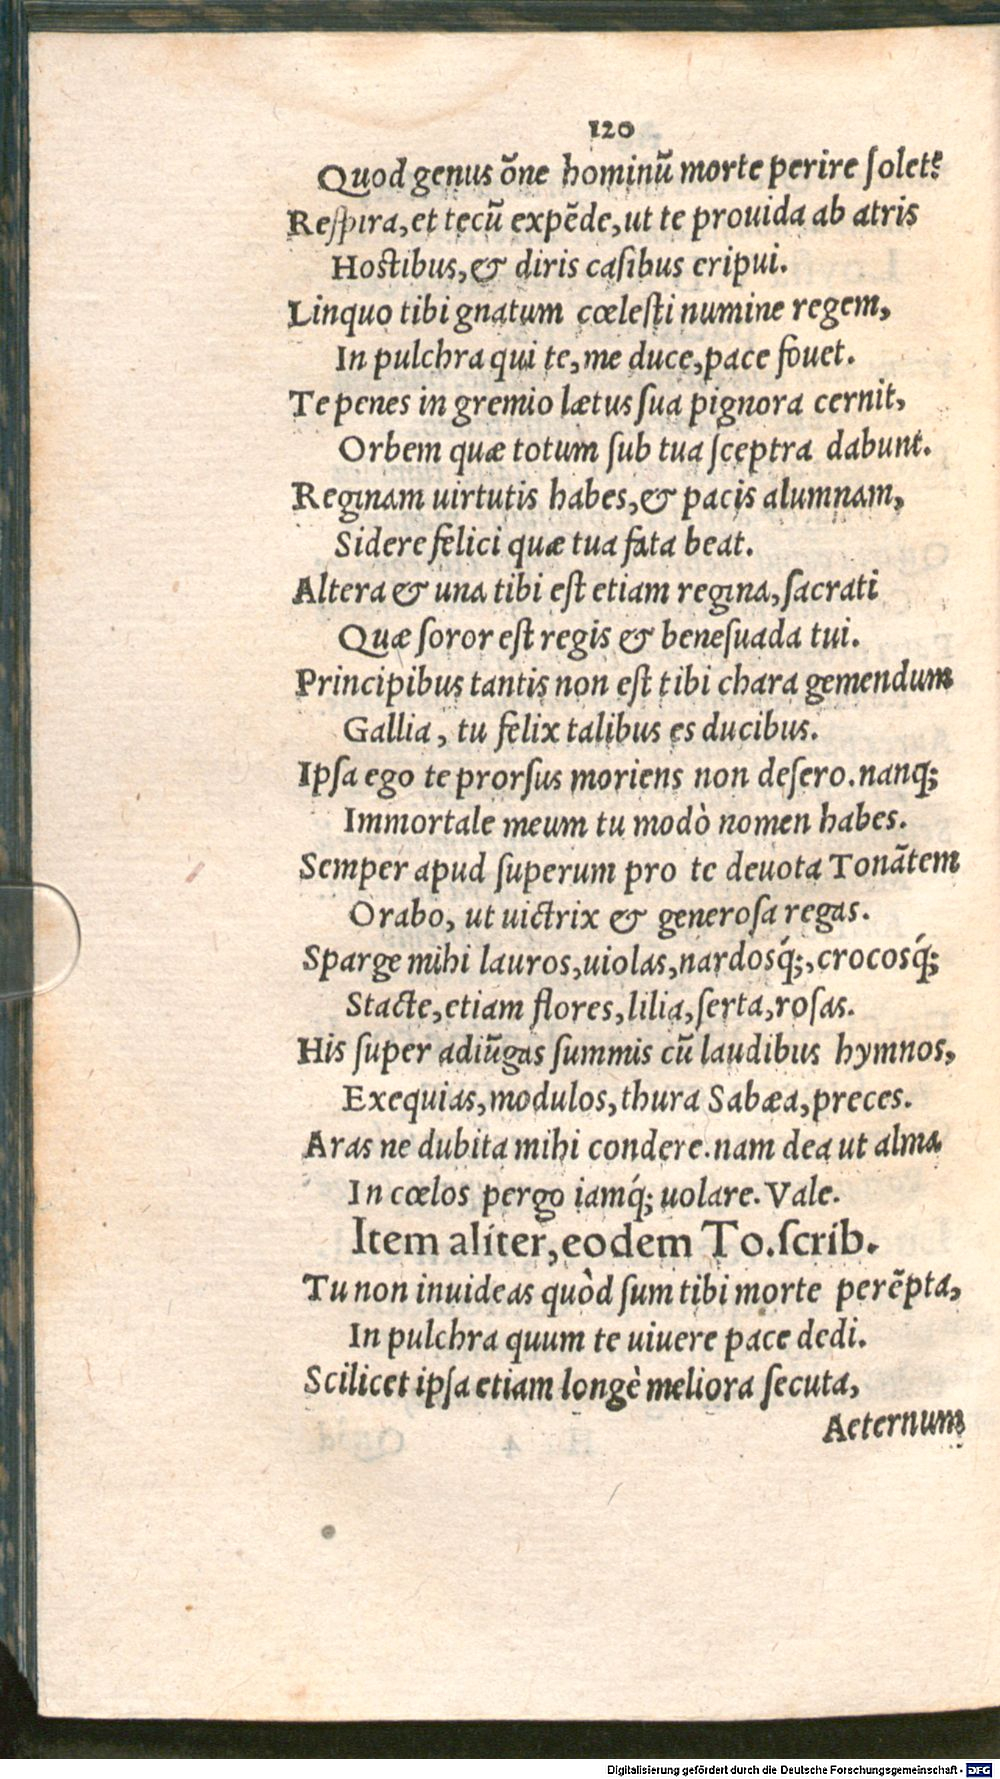 120
Quod genus õne hominũ morte perire ſolet?
Reſpira, et tecũ expẽde, ut te prouida ab atris
Hoſtibus, & diris caſibus eripui.
Linquo tibi gnatum cœleſti numine regem,
In pulchra qui te, me duce, pace fouet.
Te penes in gremio lætus ſua pignora cernit,
Orbem quæ totum ſub tua ſceptra dabunt.
Reginam uirtutis habes, & pacis alumnam,
Sidere felici quæ tua fata beat.
Altera & una tibi eſt etiam regina, ſacrati
Quæ ſoror eſt regis & beneſuada tui.
Principibus tantis non eſt tibi chara gemendum
Gallia, tu felix talibus es ducibus.
Ipſa ego te prorſus moriens non deſero. nanq;
Immortale meum tu modò nomen habes.
Semper apud ſuperum pro te deuota Tonãtem
Orabo, ut uictrix & generoſa regas.
Sparge mihi lauros, uiolas, nardosq́;, crocosq́;
Stacte, etiam flores, lilia, ſerta, roſas.
His ſuper adiũgas ſummis cũ laudibus hymnos,
Exequias, modulos, thura Sabæa, preces.
Aras ne dubita mihi condere. nam dea ut alma
In cœlos pergo iamq́; uolare. Vale.
Item aliter, eodem To. ſcrib.
Tu non inuideas quòd ſum tibi morte perẽpta,
In pulchra quum te uiuere pace dedi.
Scilicet ipſa etiam longè meliora ſecuta,
Aeternum
Digitalisierung gefördert durch die Deutsche Forschungsgemeinschaft - DFG